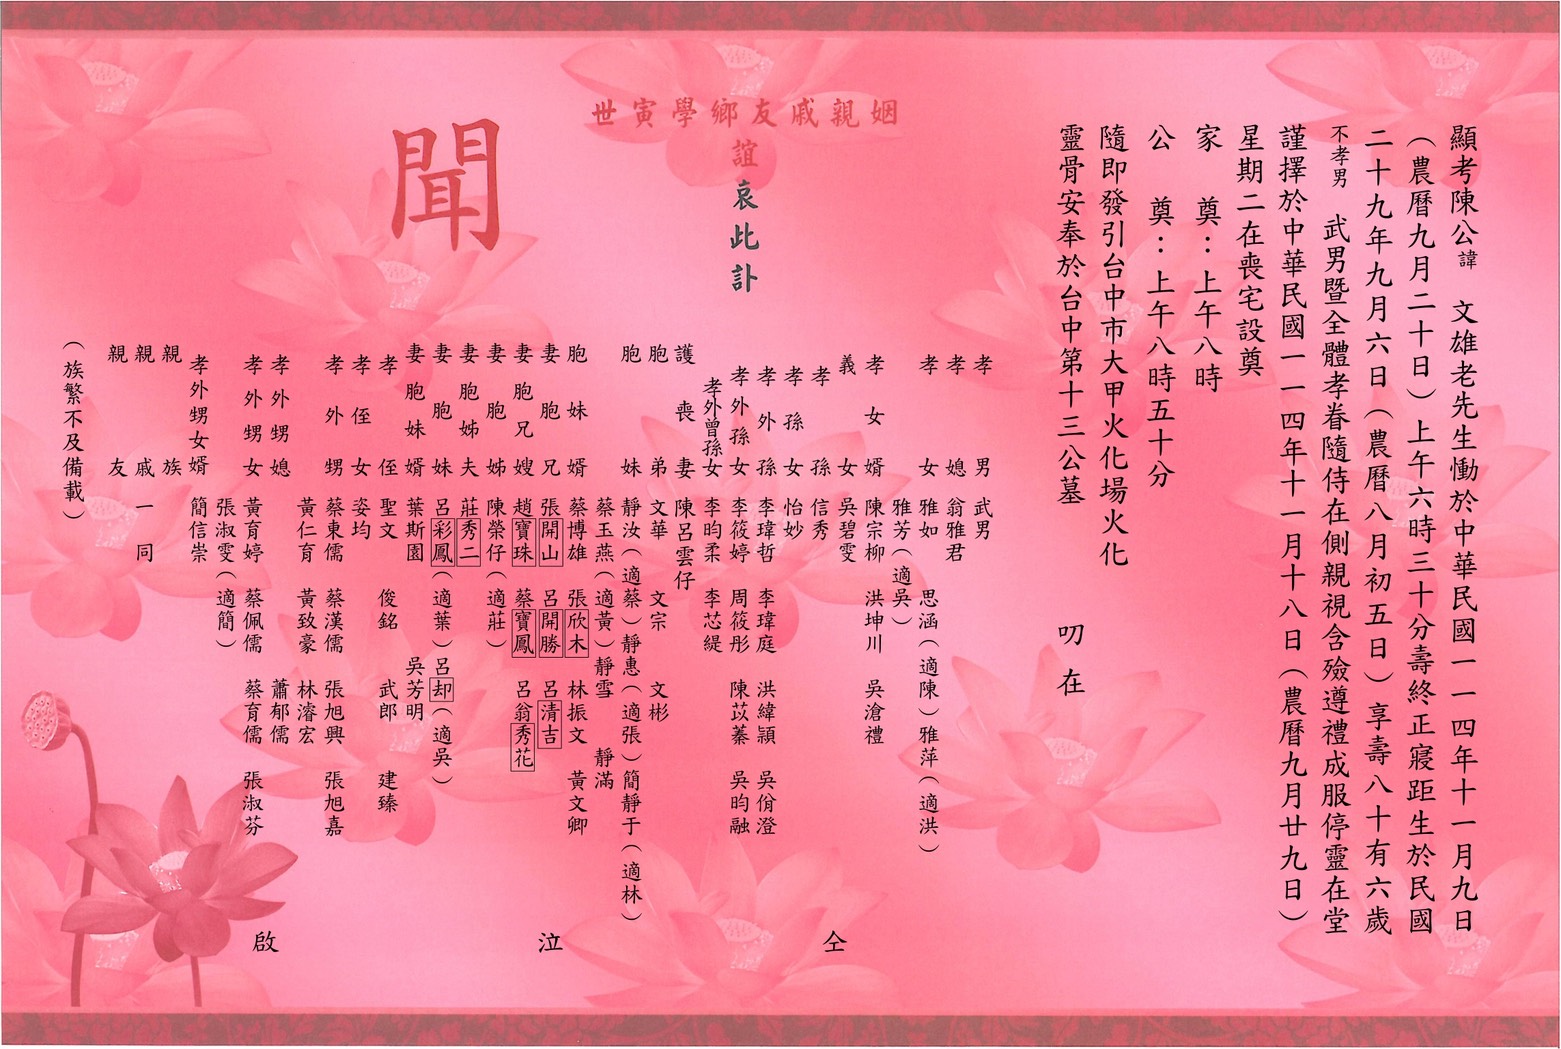 顯考陳公諱 文雄老先生慟於中華民國一一四年十一月九日
（農曆九月二十日）上午六時三十分壽終正寢距生於民國
二十九年九月六日（農曆八月初五日）享壽八十有六歲
不孝男 武男暨全體孝眷隨侍在側親視含殮遵禮成服停靈在堂
謹擇於中華民國一一四年十一月十八日（農曆九月廿九日）
星期二在喪宅設奠
家 奠：上午八時
公 奠：上午八時五十分
隨即發引台中市大甲火化場火化
靈骨安奉於台中第十三公墓 叨在
姻親戚友鄉學寅世
誼哀此訃
聞
孝男 武男
孝媳 翁雅君
孝女 雅如 思涵（適陳）雅萍（適洪）
雅芳（適吳）
孝女婿 陳宗柳 洪坤川 吳滄禮
義女 吳碧雯
孝孫 信秀
孝孫女 怡妙
孝外孫 李瑋哲 李瑋庭 洪緯穎 吳佾澄
孝外孫女 李筱婷 周筱彤 陳苡蓁 吳昀融
孝外曾孫女 李昀柔 李芯緹
護喪妻 陳呂雲仔
胞弟 文華 文宗 文彬
胞妹 靜汝（適蔡）靜惠（適張）簡靜于（適林）
蔡玉燕（適黃）靜雪 靜滿
胞妹婿 蔡博雄 張欣木 林振文 黃文卿
妻胞兄 張開山 呂開勝 呂清吉
妻胞兄嫂 趙寶珠 蔡寶鳳 呂翁秀花
妻胞姊 陳榮仔（適莊）
妻胞姊夫 莊秀二
妻胞妹 呂彩鳳（適葉）呂却（適吳）
妻胞妹婿 葉斯園 吳芳明
孝侄 聖文 俊銘 武郎 建臻
孝侄女 姿均
孝外甥 蔡東儒 蔡漢儒 張旭興 張旭嘉
黃仁育 黃致豪 林濬宏
孝外甥媳 蕭郁儒
孝外甥女 黃育婷 蔡佩儒 蔡育儒 張淑芬
張淑雯（適簡）
孝外甥女婿 簡信崇
親族
親戚一同
親友
（族繁不及備載）
仝 泣 啟